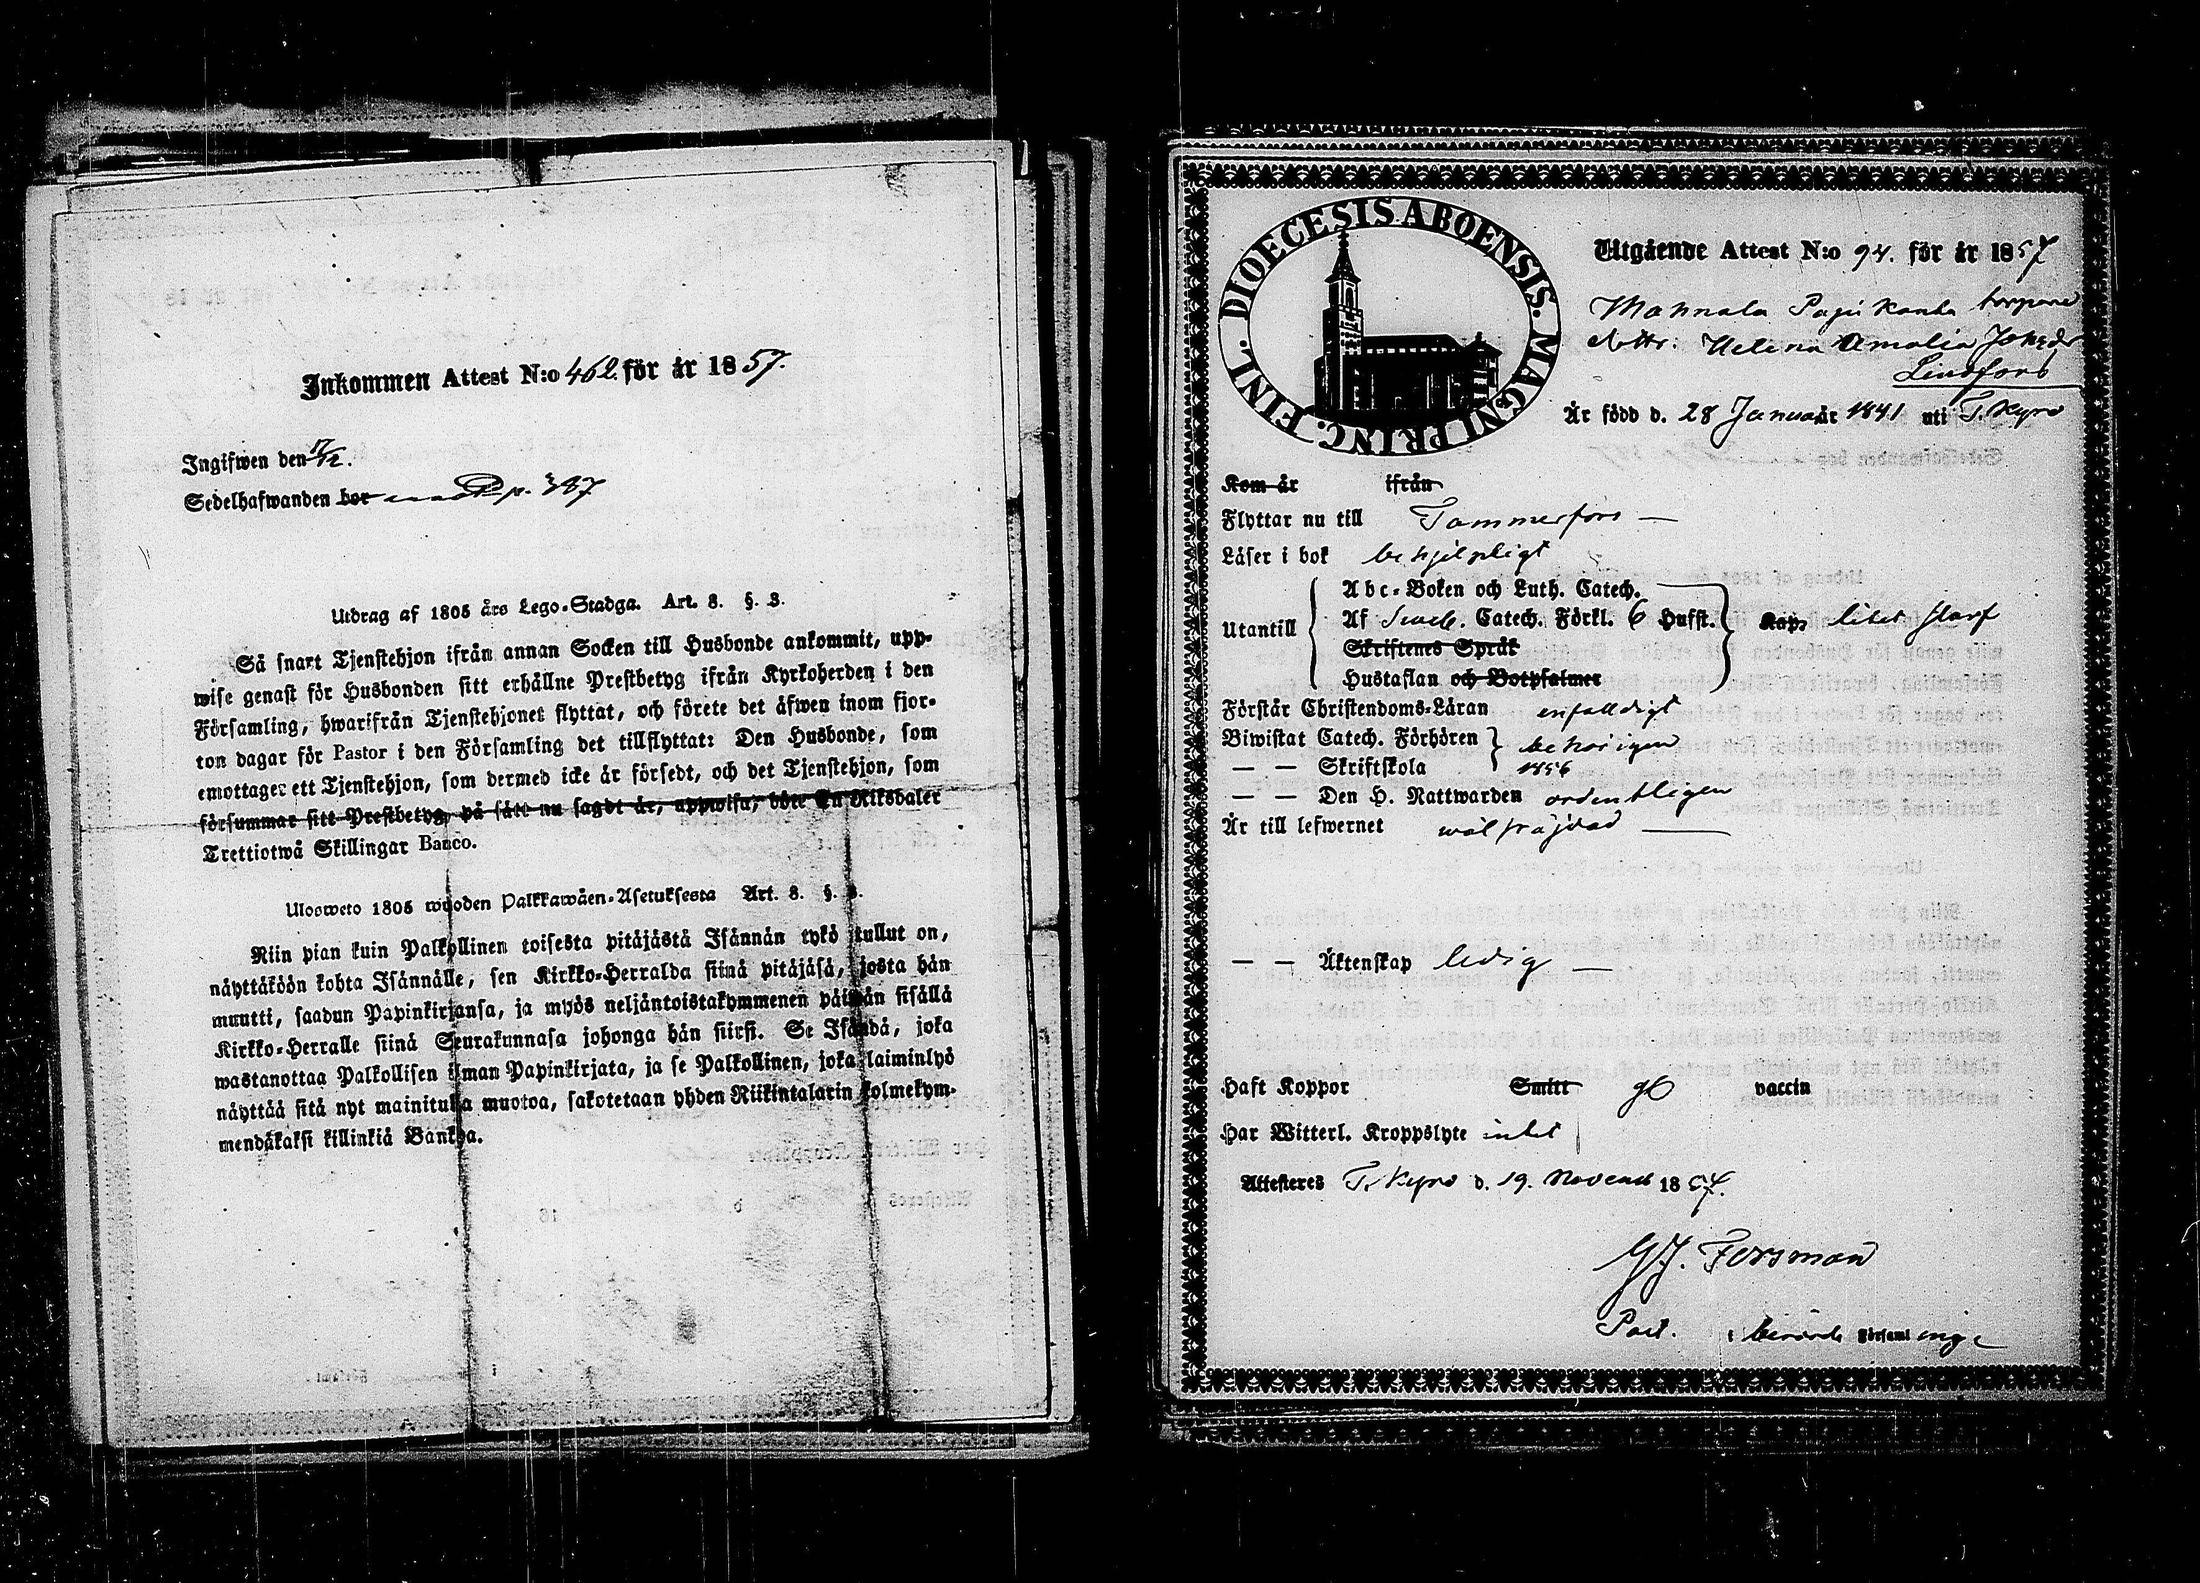 Inkommen Attest N:o 462. för år 1857.
Ingifwen den 17/12.
Sedelhafwanden bor p. 387
Utdrag af 1805 års Lego-Stadga. Art. 8. §. 3.
Så snart Tjenstehjon ifrån annan Socken till Husbonde ankommit, upp-
wise genast för Husbonden sitt erhållne Prestbetyg ifrån Kyrkoherden i den
Församling, hwarifrån Tjenstehjonet flyttat, och förete det äfwen inom fjor-
ton dagar för Pastor i den Församling det tillflyttat: Den Husbonde, som
emottager ett Tjenstehjon, som dermed icke är försedt, och det Tjenstehjon, som
försummar sitt Prestbetyg, på sätt nu sagdt är, uppwisa, böte En Riksdaler
Trettiotwå Skillingar Banco.
Ulosweto 1805 wuoden Palkkawäen-Asetuksesta Art. 8. §. 3.
Niin pian kuin Palkollinen toisesta pitäjästä Isännän tykö tullut on,
näyttäköön kohta Isännälle, sen Kirkko-Herralda siinä pitäjäsä, josta hän
muutti, saadun Papinkirjansa, ja myös neljäntoistakymmenen päiwän sisällä
Kirkko-Herralle siinä Seurakunnasa johonga hän siirsi. Se Isändä, joka
wastanottaa Palkollisen ilman Papinkirjata, ja se Palkollinen, joka laiminlyö
näyttää sitä nyt mainitulla muotoa, sakotetaan yhden Riikintalarin kolmekym-
mendäkaksi killinkiä Bankoa.
DIOECESIS ABOENSIS. MAGNI PRINC. FINL.
Utgående Attest N:o 94. för år 1857
Mahnala Papi Kanta torpare
dottr. Helena Amalia Jakobsdr
Lindfors
År född d. 28 Januar år 1841 uti T. Kyro
Kom år ifrån
Flyttar nu till Tammerfors —
Läser i bok behjelpligt
Abc-Boken och Luth. Catech.
Utantill Af Sveb. Catech. Förkl. 6 Hufst. Kap. litet slarf
Skriftenes Språk
Hustaflan och Botpsalmer
Förstår Christendoms-Läran enfalldigt
Biwistat Catech. Förhören behörigen
— — Skriftskola 1856
— — Den H. Nattwarden ordentligen
Är till lefwernet wäl fräjdad —
— — Äktenskap ledig —
Haft Koppor Smitt ge vaccin
Har Witterl. Kroppslyte intet
Attesteres T. Kyro d. 19. Novemb 1857.
G J. Forsman
Past. i berörde Församl inge